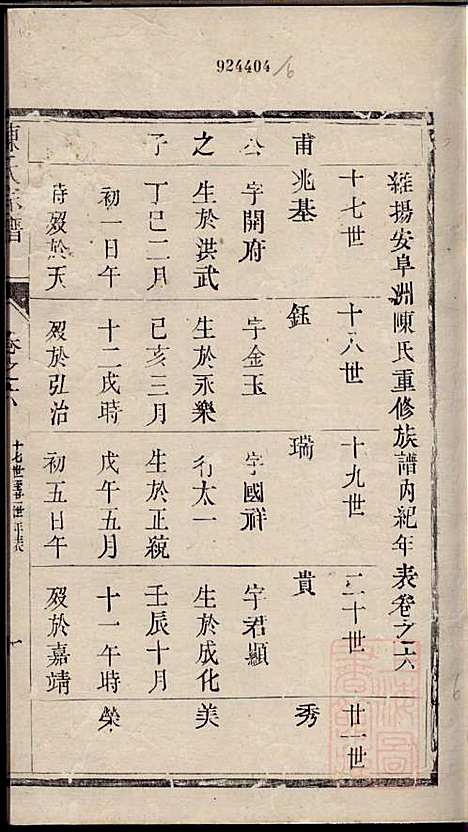 924404/6
維揚安阜洲陳氏重修族譜內紀年表卷之六
十七世 十八世 十九世 二十世 廿一世
甫 兆基 鈺 瑞 貴 秀
公 字開府 字金玉 字國祥 字君顯
之 生於洪武 生於永樂 行太一 生於成化 美
子 丁巳二月 己亥三月 生於正統 壬辰十月
初一日午 十二戌時 戊午五月 十一午時 榮
時歿於天 歿於弘治 初五日午 歿於嘉靖
陳氏宗譜
卷之六
十七世至廿一世年表
一